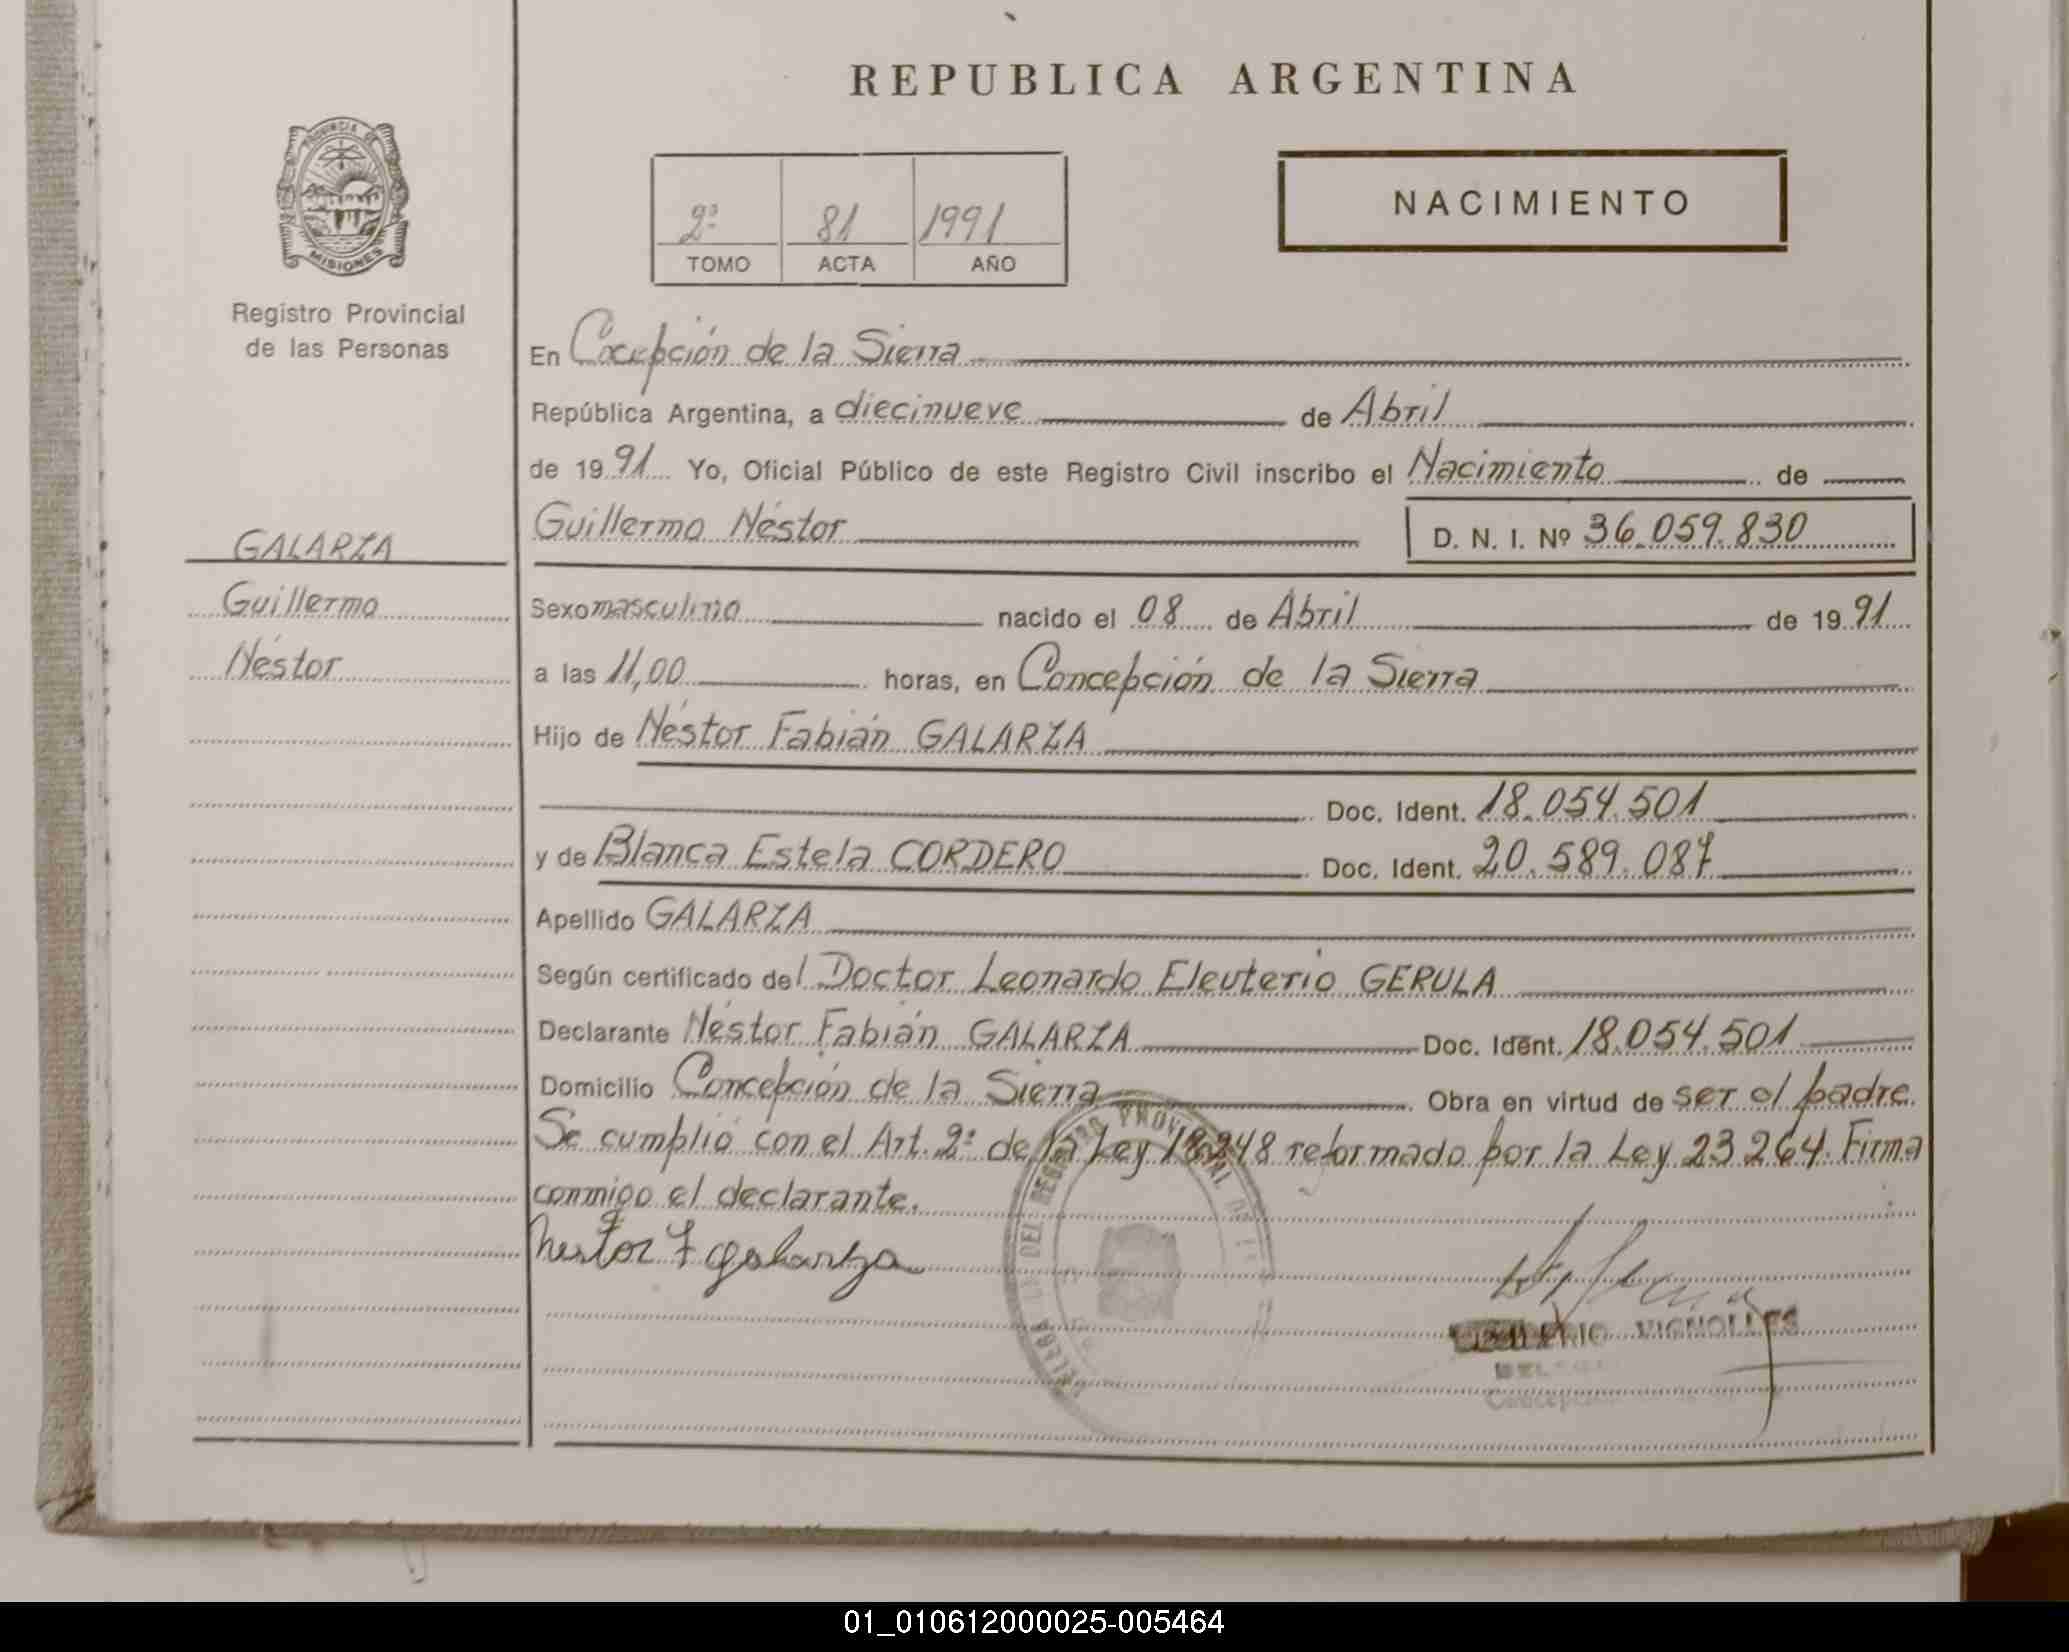 REPUBLICA ARGENTINA
PROVINCIA DE
MISIONES
Registro Provincial
de las Personas
2º 81 1991
TOMO ACTA AÑO
NACIMIENTO
En Cocepción de la Sierra
República Argentina, a diecinueve de Abril
de 1991 Yo, Oficial Público de este Registro Civil inscribo el Nacimiento de
Guillermo Néstor D. N. I. Nº 36.059.830
GALARZA
Guillermo
Néstor
Sexo masculino nacido el 08 de Abril de 1991
a las 11,00 horas, en Concepción de la Sierra
Hijo de Néstor Fabián GALARZA
Doc. Ident. 18.054.501
y de Blanca Estela CORDERO Doc. Ident. 20.589.087
Apellido GALARZA
Según certificado del Doctor Leonardo Eleuterio GERULA
Declarante Néstor Fabián GALARZA Doc. Ident. 18.054.501
Domicilio Concepción de la Sierra Obra en virtud de ser el padre.
Se cumplió con el Art. 2º de la Ley 18248 reformado por la Ley 23264. Firma
conmigo el declarante.
Nestor F galarza
DEL REGISTRO PROVINCIAL DE
VIGNOLLES
01_010612000025-005464